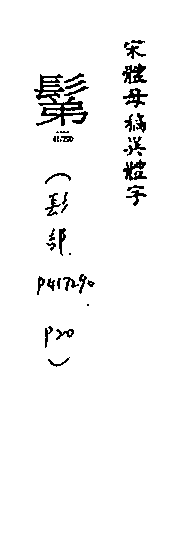 宋體母稿異體字
髴
417290
(髟部
P417290
P20)